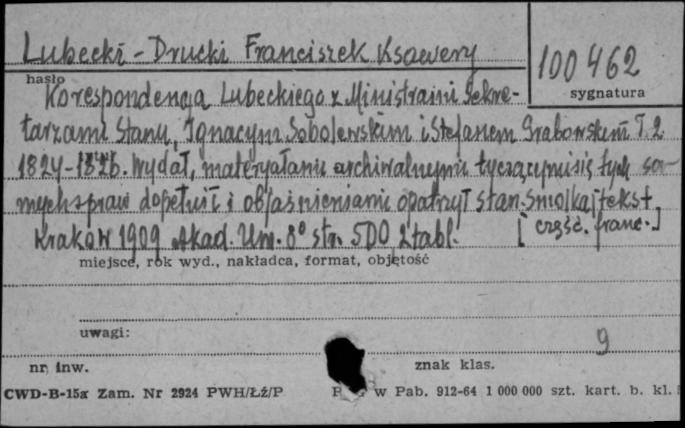 Lubecki - Drucki Franciszek Ksawery
100 462
hasło
sygnatura
Korespondencja Lubeckiego z Ministrami Sekre-
tarzami Stanu, Ignacym Sobolewskim i Stefanem Grabowskim T. 2
1824-1826. Wydał, materyałami archiwalnymi tyczącymi się tych sa-
mych spraw dopełnił i objaśnieniami opatrzył Stan. Smolka [tekst
Kraków 1909 Akad. Um. 8° str. 500, 2 tabl. [część. franc.]
miejsce, rok wyd., nakładca, format, objętość
uwagi:
9
nr. inw.
znak klas.
CWD-B-15a Zam. Nr 2924 PWH/Łź/P
w Pab. 912-64 1 000 000 szt. kart. b. kl.